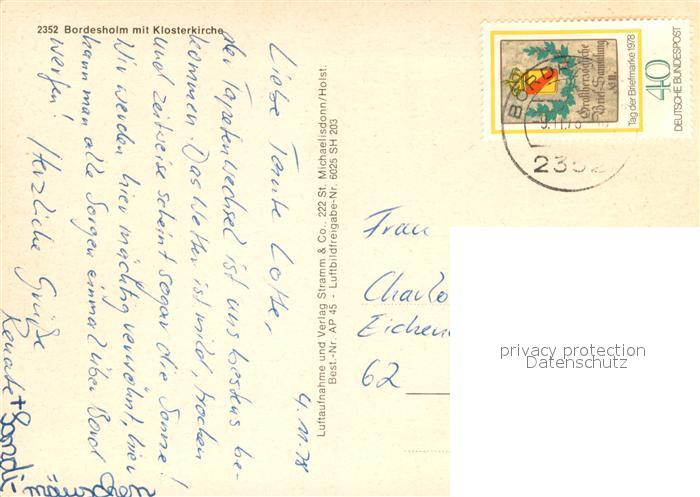 2352 Bordesholm mit Klosterkirche
4.11.78
Liebe Tante Lotte,
der Tapetenwechsel ist uns bestens be-
kommen. Das Wetter ist mild, trocken
und zeitweise scheint sogar die Sonne!
Wir werden hier mächtig verwöhnt, hier
kann man alle Sorgen einmal über Bord
werfen!
Herzliche Grüße
Renate +
Luftaufnahme und Verlag Stramm & Co., 222 St. Michaelisdonn/Holst.
Best.-Nr. AP 45 - Luftbildfreigabe-Nr. 6025 SH 203
Großherzogliche
Brief-Sammlung
Tag der Briefmarke 1978
40
DEUTSCHE BUNDESPOST
BORD
2352
Frau
Charlo
Eichen
62
privacy protection
Datenschutz